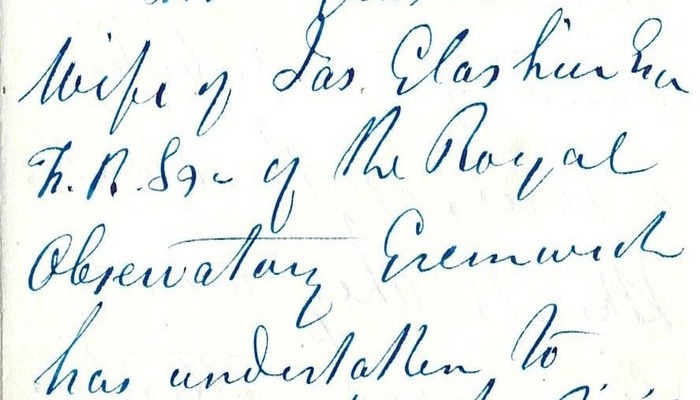 Wife of Jas. Glashier Esq
F.R.S &c of the Royal
Observatory Greenwich
has undertaken to